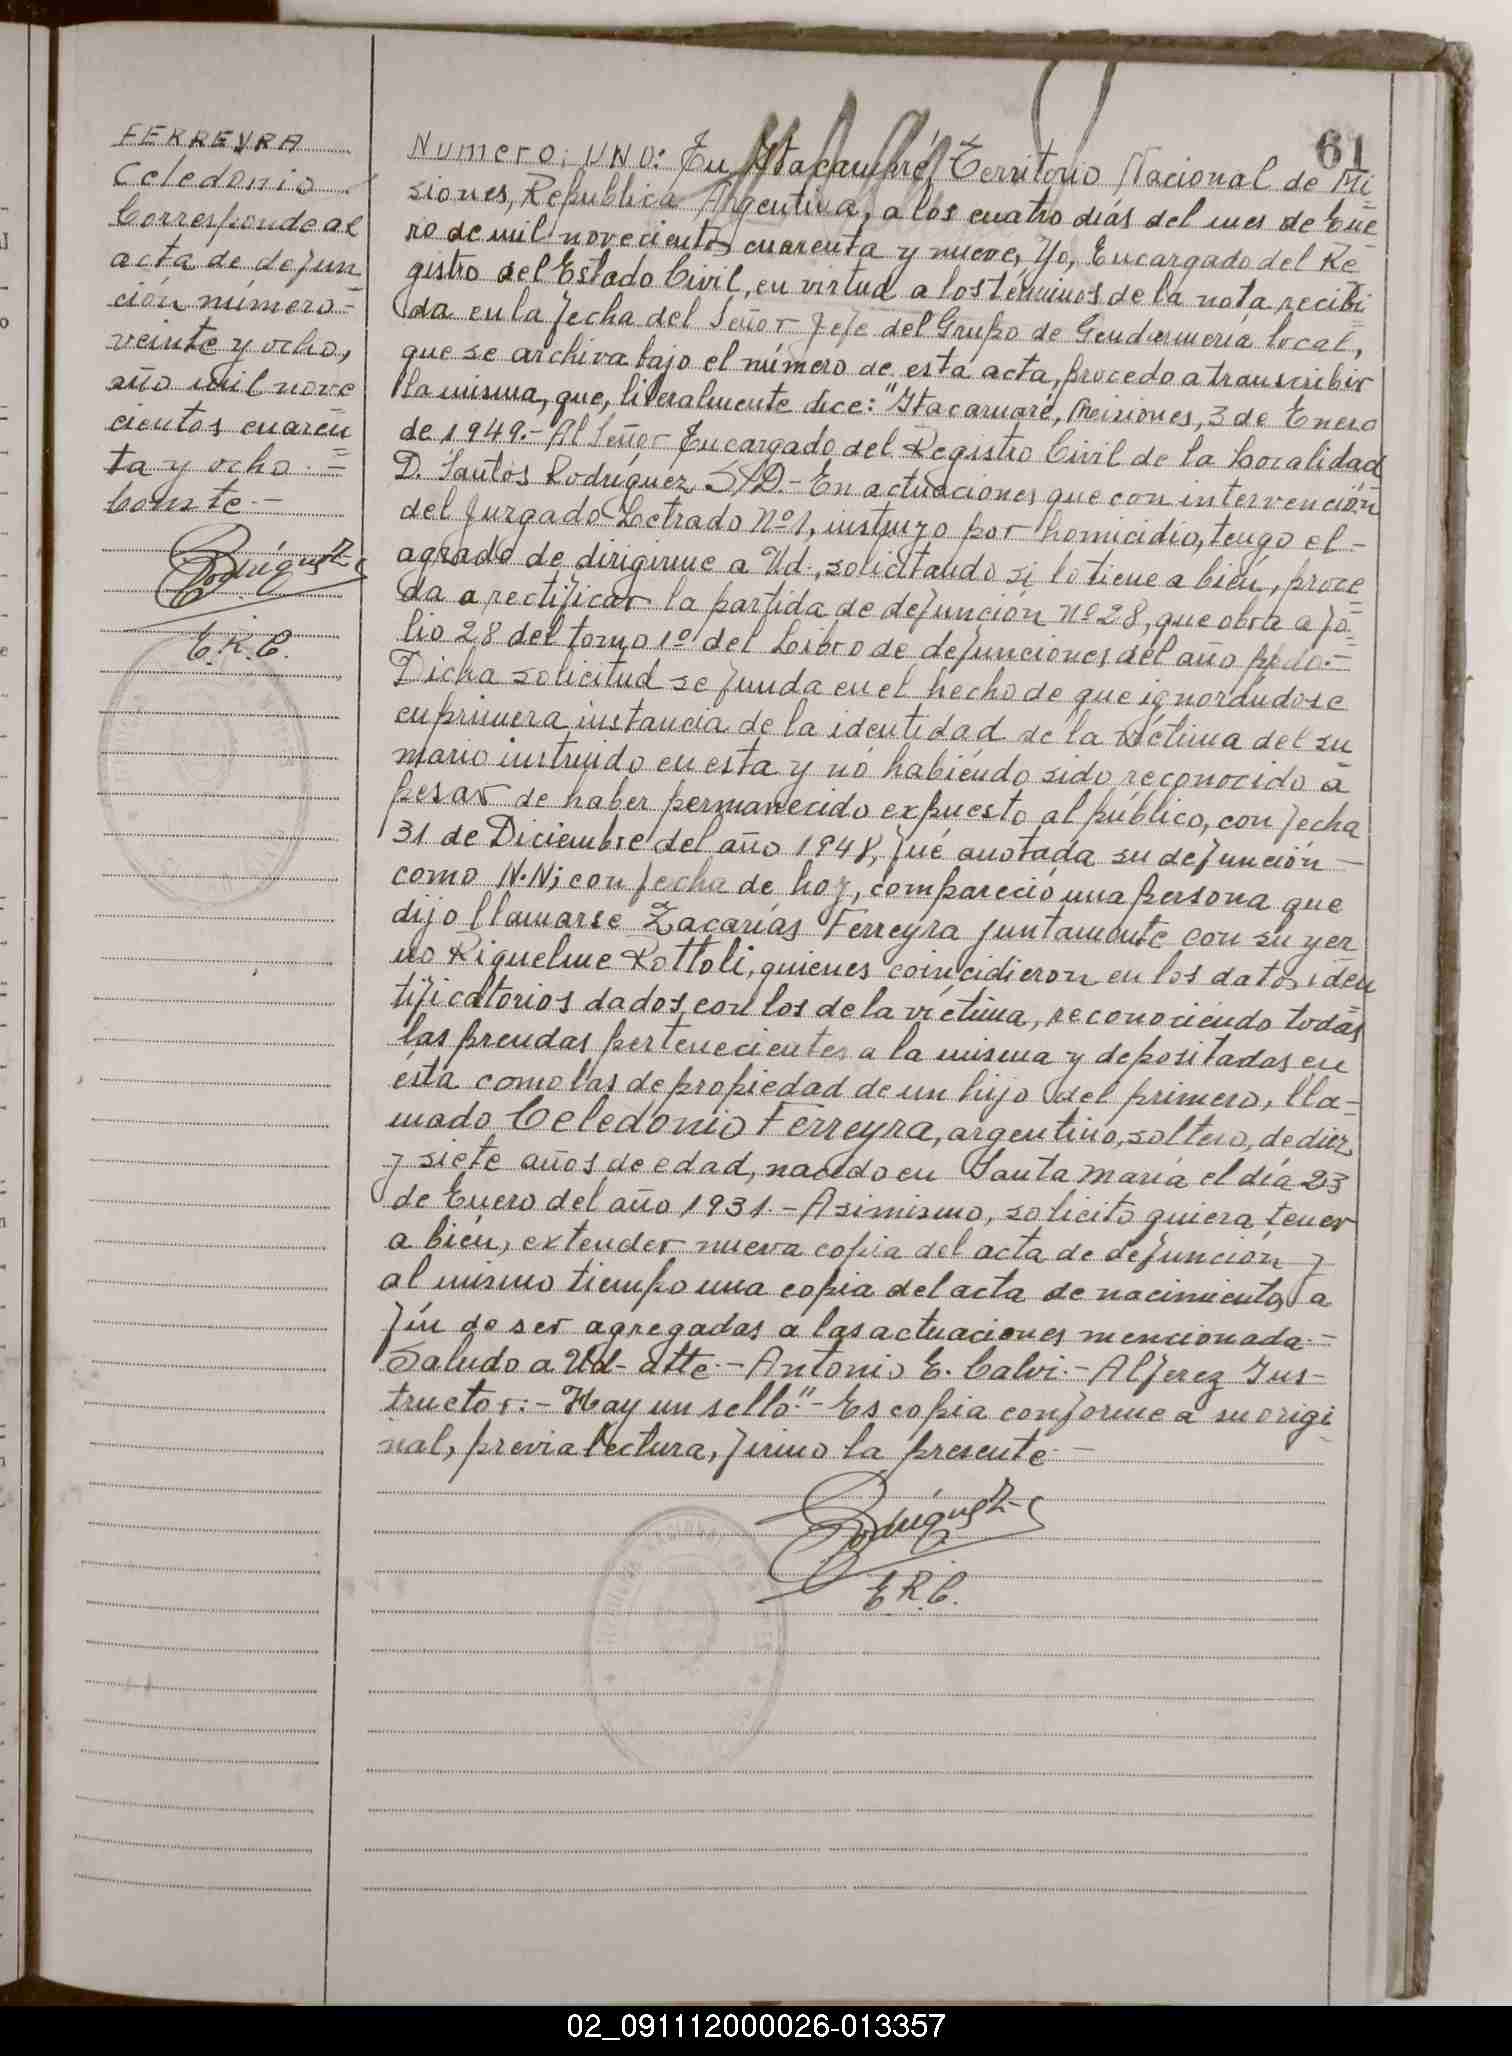 61
FERREYRA
Celedonio
Corresponde al
acta de defun
ción número=
veinte y ocho,
año mil nove
cientos cuaren
ta y ocho.=
Conste.-
Rodríguez
E.R.C.
Numero: UNO: En Itacaruaré, Territorio Nacional de Mi=
siones, Republica Argentina, a los cuatro días del mes de Ene=
ro de mil novecientos cuarenta y nueve, Yo, Encargado del Re=
gistro del Estado Civil, en virtud a los términos de la nota recibi=
da en la fecha del Señor Jefe del Grupo de Gendarmería local,
que se archiva bajo el número de esta acta, procedo a transcribir
la misma, que, literalmente dice: "Itacaruaré, Misiones, 3 de Enero
de 1949.- Al Señor Encargado del Registro Civil de la Localidad
D. Santos Rodríguez S/D.- En actuaciones que con intervención
del Juzgado Letrado Nº1, instruyo por homicidio, tengo el-
agrado de dirigirme a Ud., solicitando si lo tiene a bien, proce=
da a rectificar la partida de defunción Nº 28, que obra a fo=
lio 28 del tomo 1º del Libro de defunciones del año ppdo.=
Dicha solicitud se funda en el hecho de que ignorándose
en primera instancia de la identidad de la víctima del su=
mario instruido en esta y nó habiéndo sido reconocido a
pesar de haber permanecido expuesto al público, con fecha
31 de Diciembre del año 1948, fué anotada su defunción-
como N.N; con fecha de hoy, compareció una persona que
dijo llamarse Zacarías Ferreyra juntamente con su yer
no Riquelme Rottoli, quienes coincidieron en los datos iden
tificatorios dados con los de la víctima, reconociendo todas
las prendas pertenecientes a la misma y depositadas en
ésta como las de propiedad de un hijo del primero, lla-
mado Celedonio Ferreyra, argentino, soltero, de diez
y siete años de edad, nacido en Santa María el día 23
de Enero del año 1931.- Asimismo, solicito quiera tener
a bién, extender nueva copia del acta de defunción y
al mismo tiempo una copia del acta de nacimiento, a
fín de ser agregadas a las actuaciones mencionada.-
Saludo a Ud- atte.- Antonio E. Calvi.- Alferez Ins-
tructor:- Hay un sello."- Es copia conforme a su origi
nal, previa lectura, firmo la presente.-
Rodríguez
E.R.C.
02_091112000026-013357